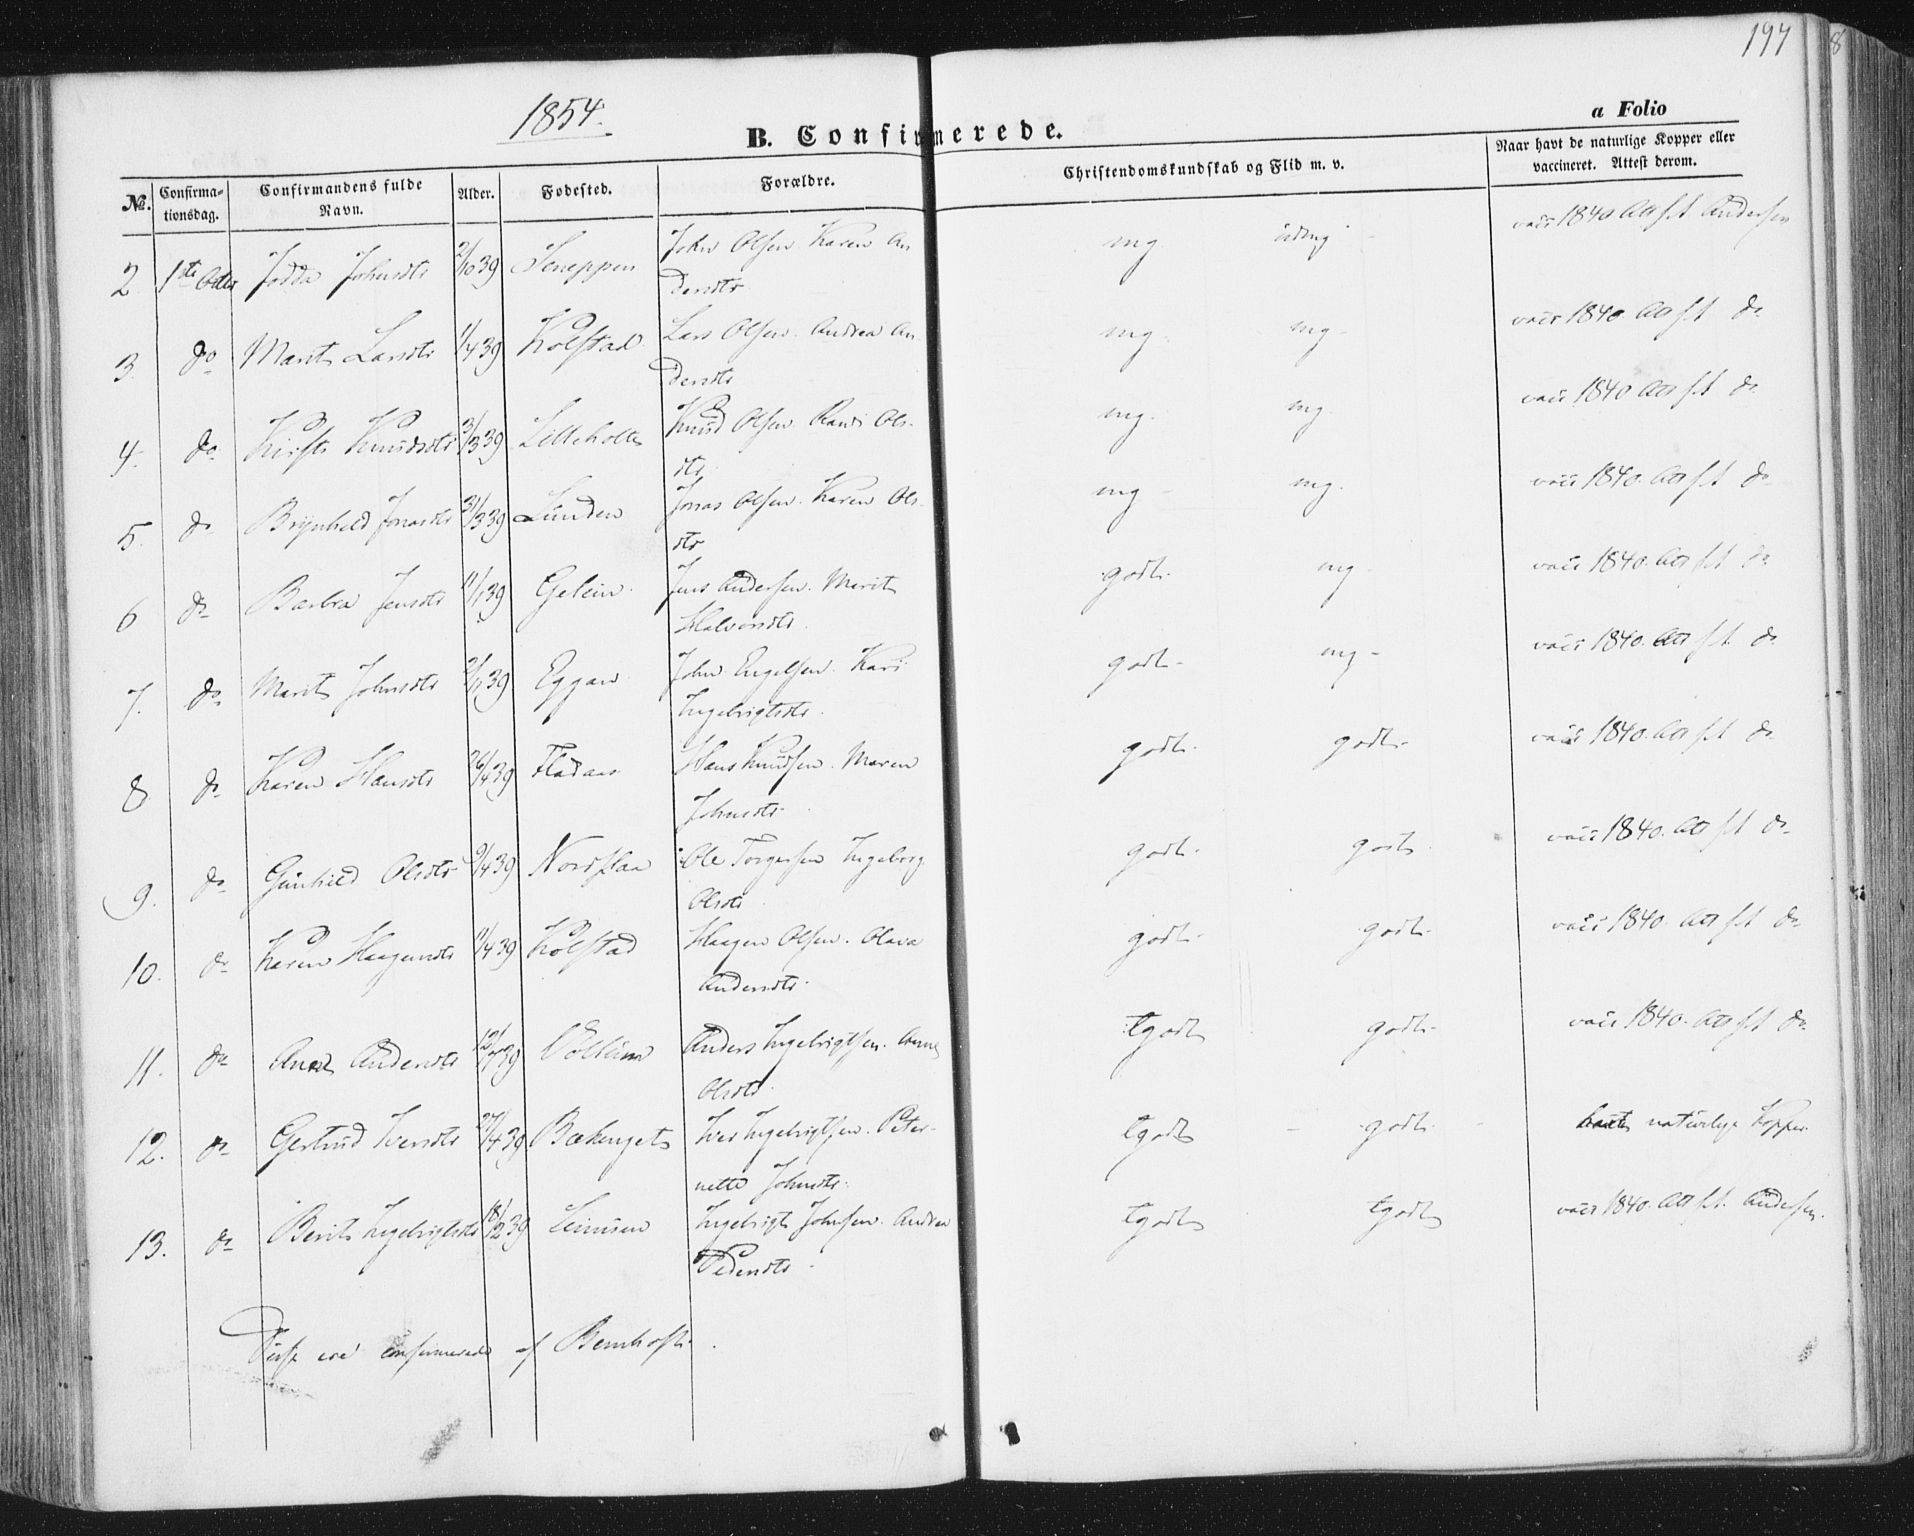 197
8
1854.
B. Confirmerede.
a Folio
№.
Confirma-
tionsdag.
Confirmandens fulde
Navn.
Alder.
Fødested.
Forældre.
Christendomskundskab og Flid m. v.
Naar havt de naturlige Kopper eller
vaccineret. Attest derom.
2. 1ste Octbr Johnsdtr 2/10 39 John Olsen. Karen An
dersdtr mg vacc 1840 Att f.A Andersen
3. do Marit Larsdtr 1/4 39 Kolstad Lars Olsen. Andrea An
dersdtr mg. mg - vacc 1840. Att f.A do
4. do Kirsti Knudsdtr 3/3 39 Lilleholte Knud Olsen. Randi Ols-
dtr mg. mg. vacc 1840 Att f.A do
5. do Brynhild Jonasdtr 31/3 39 Lunden Jonas Olsen. Karen Ols-
dtr mg - mg. vacc 1840. Att f.A do
6 do Barbra Jensdtr 11/1 39 Jens Andersen. Marit
Halvorsdtr. godt. mg - vacc 1840. Att f.A do
7. do Marit Johnsdtr 39 Eggan John Engelsen. Kari
Ingebrigtsdtr. godt - mg - vacc 1840. Att f.A do
8 do Karen Hansdtr 26/4 39 Fladaas Hans Knudsen. Maren
Johnsdtr - godt - godt - vacc 1840. Att f.A do
9. do Gunhild Olsdtr 9/4 39 Ole Torgersen Ingeborg
Olsdtr godt - godt. vacc 1840. Att f.A do
10. do Karen Haagensdtr 11/4 39 Kolstad Haagen Olsen. Olava
Andersdtr. godt - godt - vacc 1840. Att f.A do
11. do Andersdtr 12/7 39 Vollum Anders Ingebrigtsen. Anne
Olsdtr. tgodt godt - vacc 1840. Att f.A do
12. do Gertrud Iversdtr 27/4 39 Bækenget Iver Ingebrigtsen. Peter-
nette Johnsdtr. tgodt - godt - havt naturlige Kopper
13. do Berit Ingebrigtsdtr 18/12 39 Ingebrigt Johnsen. Andrea
Pedersdtr - tgodt tgodt vacc 1840. Att f.A. Andersen.
Disse ere confirmerede af Bernhoft.